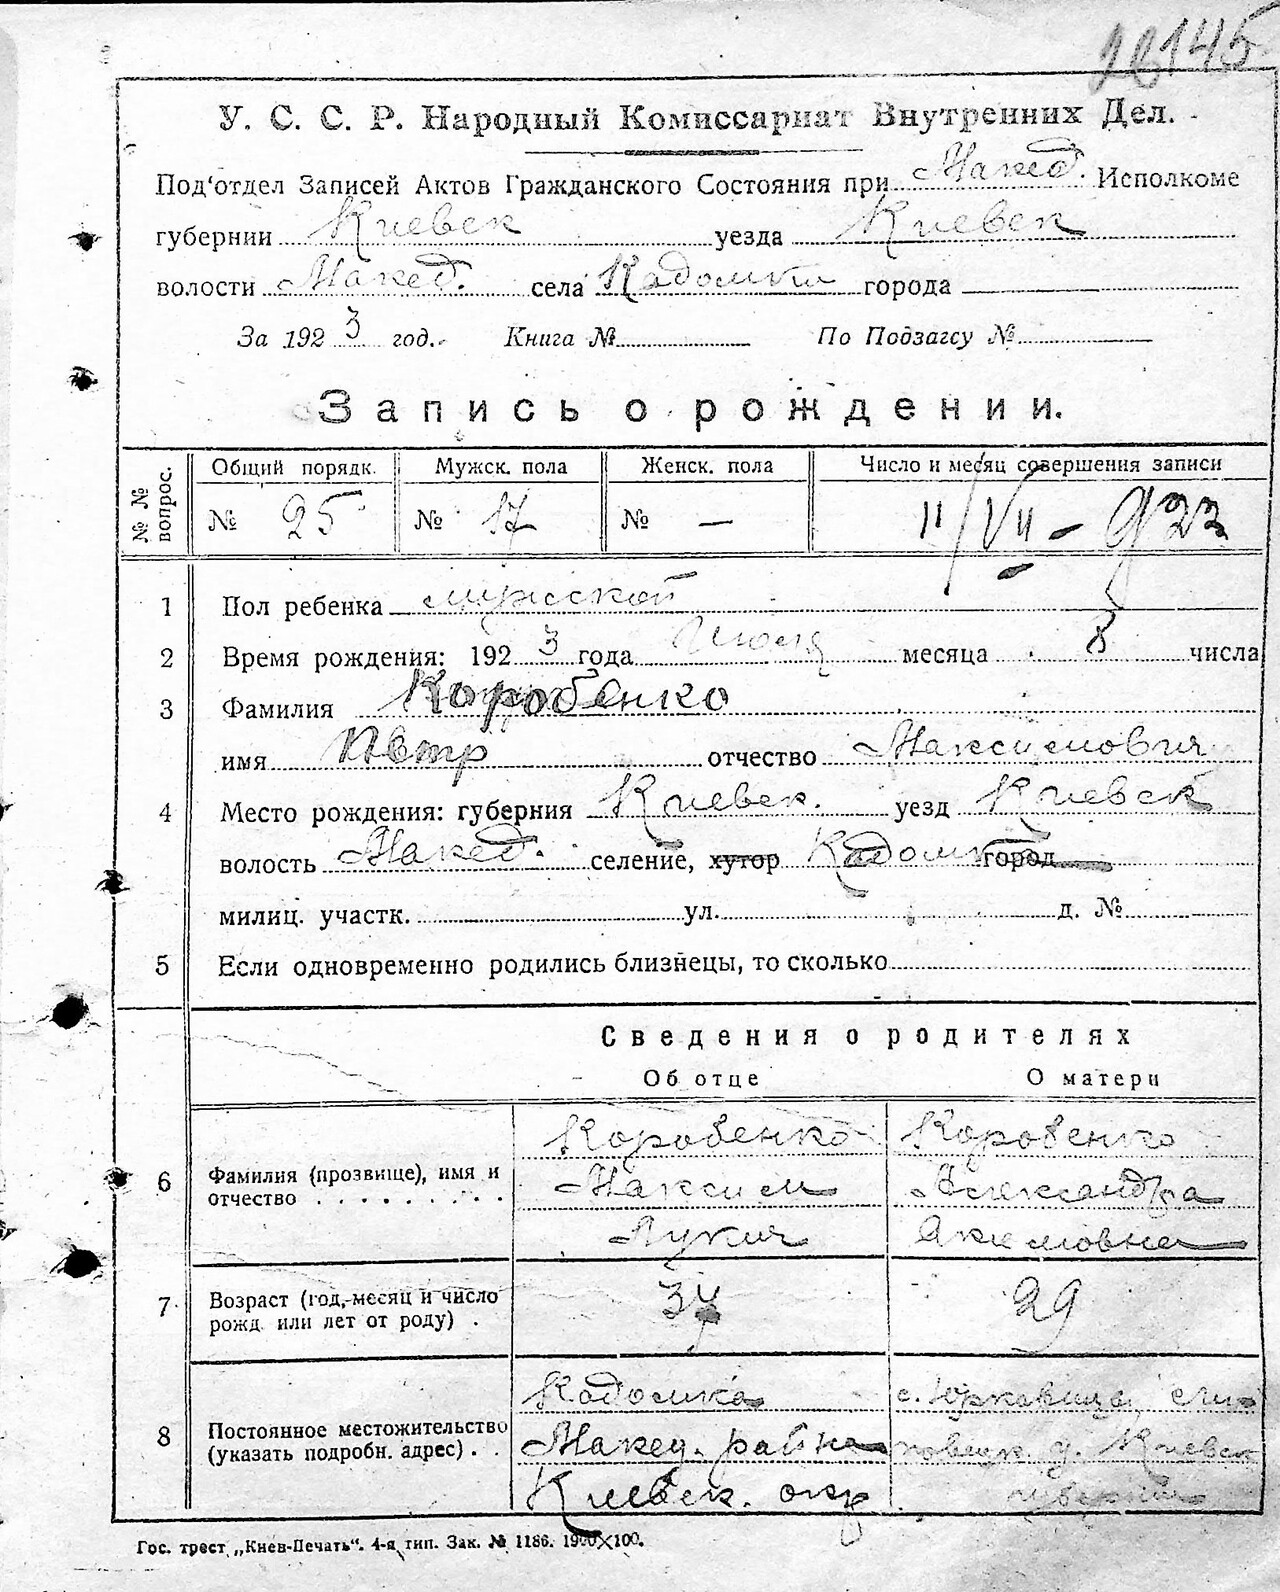 145
У. С. С. Р. Народный Комиссариат Внутренних Дел.
Под'отдел Записей Актов Гражданского Состояния при Макед. Исполкоме
губернии Киевск уезда Киевск
волости Макед. села Кадомка города
За 1923 год. Книга № По Подзагсу №
Запись о рождении.
№ № вопрос. Общий порядк. Мужск. пола Женск. пола Число и месяц совершения записи
№ 25 № 17 № — 11/VII - 923
1 Пол ребенка мужской
2 Время рождения: 1923 года Июля месяца 8 числа
3 Фамилия Коробенко
имя Петр отчество Максимович
4 Место рождения: губерния Киевск. уезд Киевск
волость Макед. селение, хутор Кадомка город
милиц. участк. ул. д. №
5 Если одновременно родились близнецы, то сколько
Сведения о родителях
Об отце О матери
6 Фамилия (прозвище), имя и отчество
Коробенко Коробенко
Максим Александра
Лукич Акимовна
7 Возраст (год, месяц и число рожд. или лет от роду) .
34 29
8 Постоянное местожительство (указать подробн. адрес) . .
Кадомка с. Юрковица,
Макед. района Киевск
Киевск. окр губернии
Гос. трест „Киев-Печать". 4-я тип. Зак. № 1186. 1900×100.